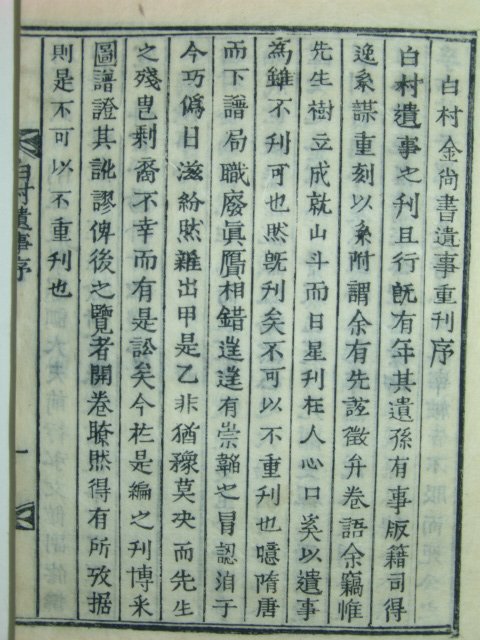 白村金尚書遺事重刊序
白村遺事之刊且行旣有年其遺孫有事版籍司得
逸系謀重刻以系附謂余有先誼徵弁卷語余竊惟
先生樹立成就山斗而日星刊在人心口奚以遺事
爲雖不刊可也然旣刊矣不可以不重刊也噫隋唐
而下譜局職廢眞贋相錯遑遑有崇韜之冐認洎于
今巧僞日滋紛然雜出甲是乙非猶豫莫决而先生
之殘邑剩裔不幸而有是訟矣今於是編之刊博采
圖譜證其訛謬俾後之覽者開卷瞭然得有所攷据
則是不可以不重刊也
白村遺事序
一